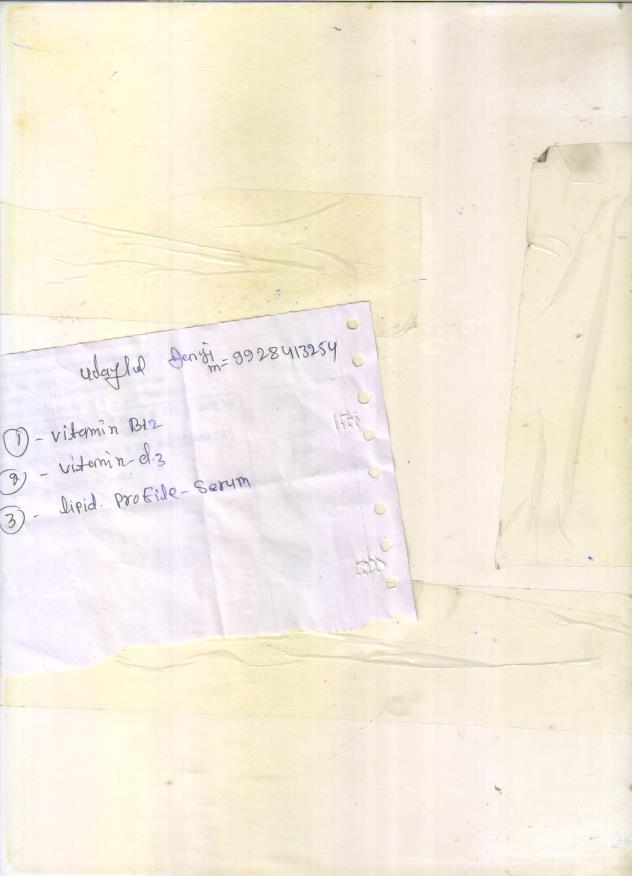 udaylal Denji
m= 9928413254
① - vitamin B12
② - vitamin d3
③ - lipid. profile - Serum